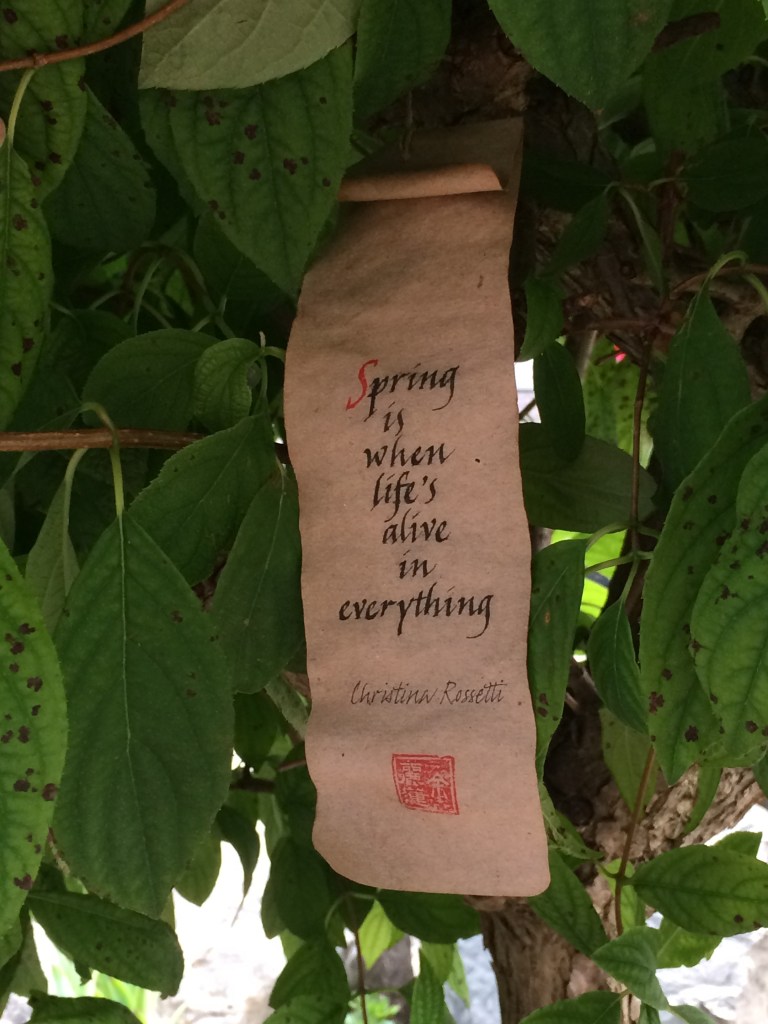 Spring
is
when
life's
alive
in
everything
Christina Rossetti